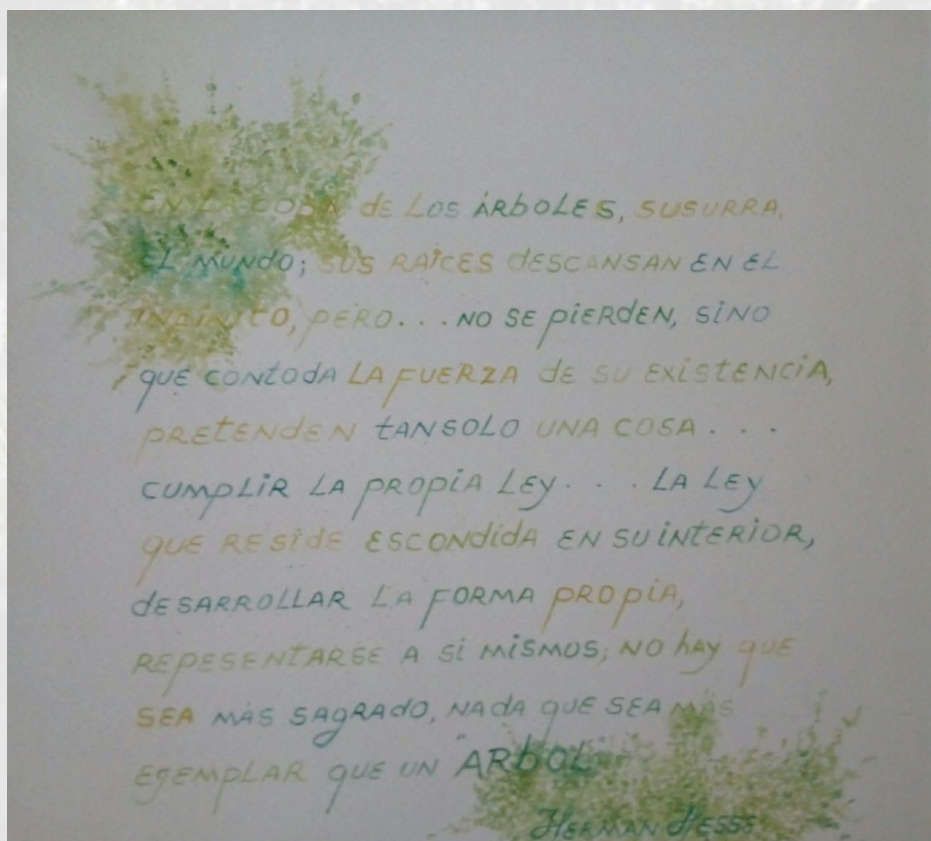 EN LA COPA de LOS ÁRBOLES, SUSURRA,
EL MUNDO; SUS RAÍCES dESCANSAN EN EL
INFINITO, PERO... NO SE PIERDEN, SINO
QUE CONTODA LA FUERZA de SU EXISTENCIA,
PRETENDEN TANSOLO UNA COSA . . .
CUMPLIR LA PROPIA LEY. . . LA LEY
QUE RESIDE ESCONDIDA EN SU INTERIOR,
dESARROLLAR LA FORMA PROPIA,
REPESENTARSE A SI MISMOS; NO hay QUE
SEA MÁS SAGRADO, NADA QUE SEA MÁS
EJEMPLAR QUE UN "ARBOL"
HERMAN HESSE